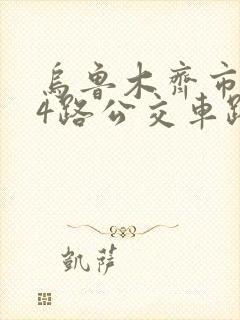 烏魯木齊市
4路公交車路
凱薩